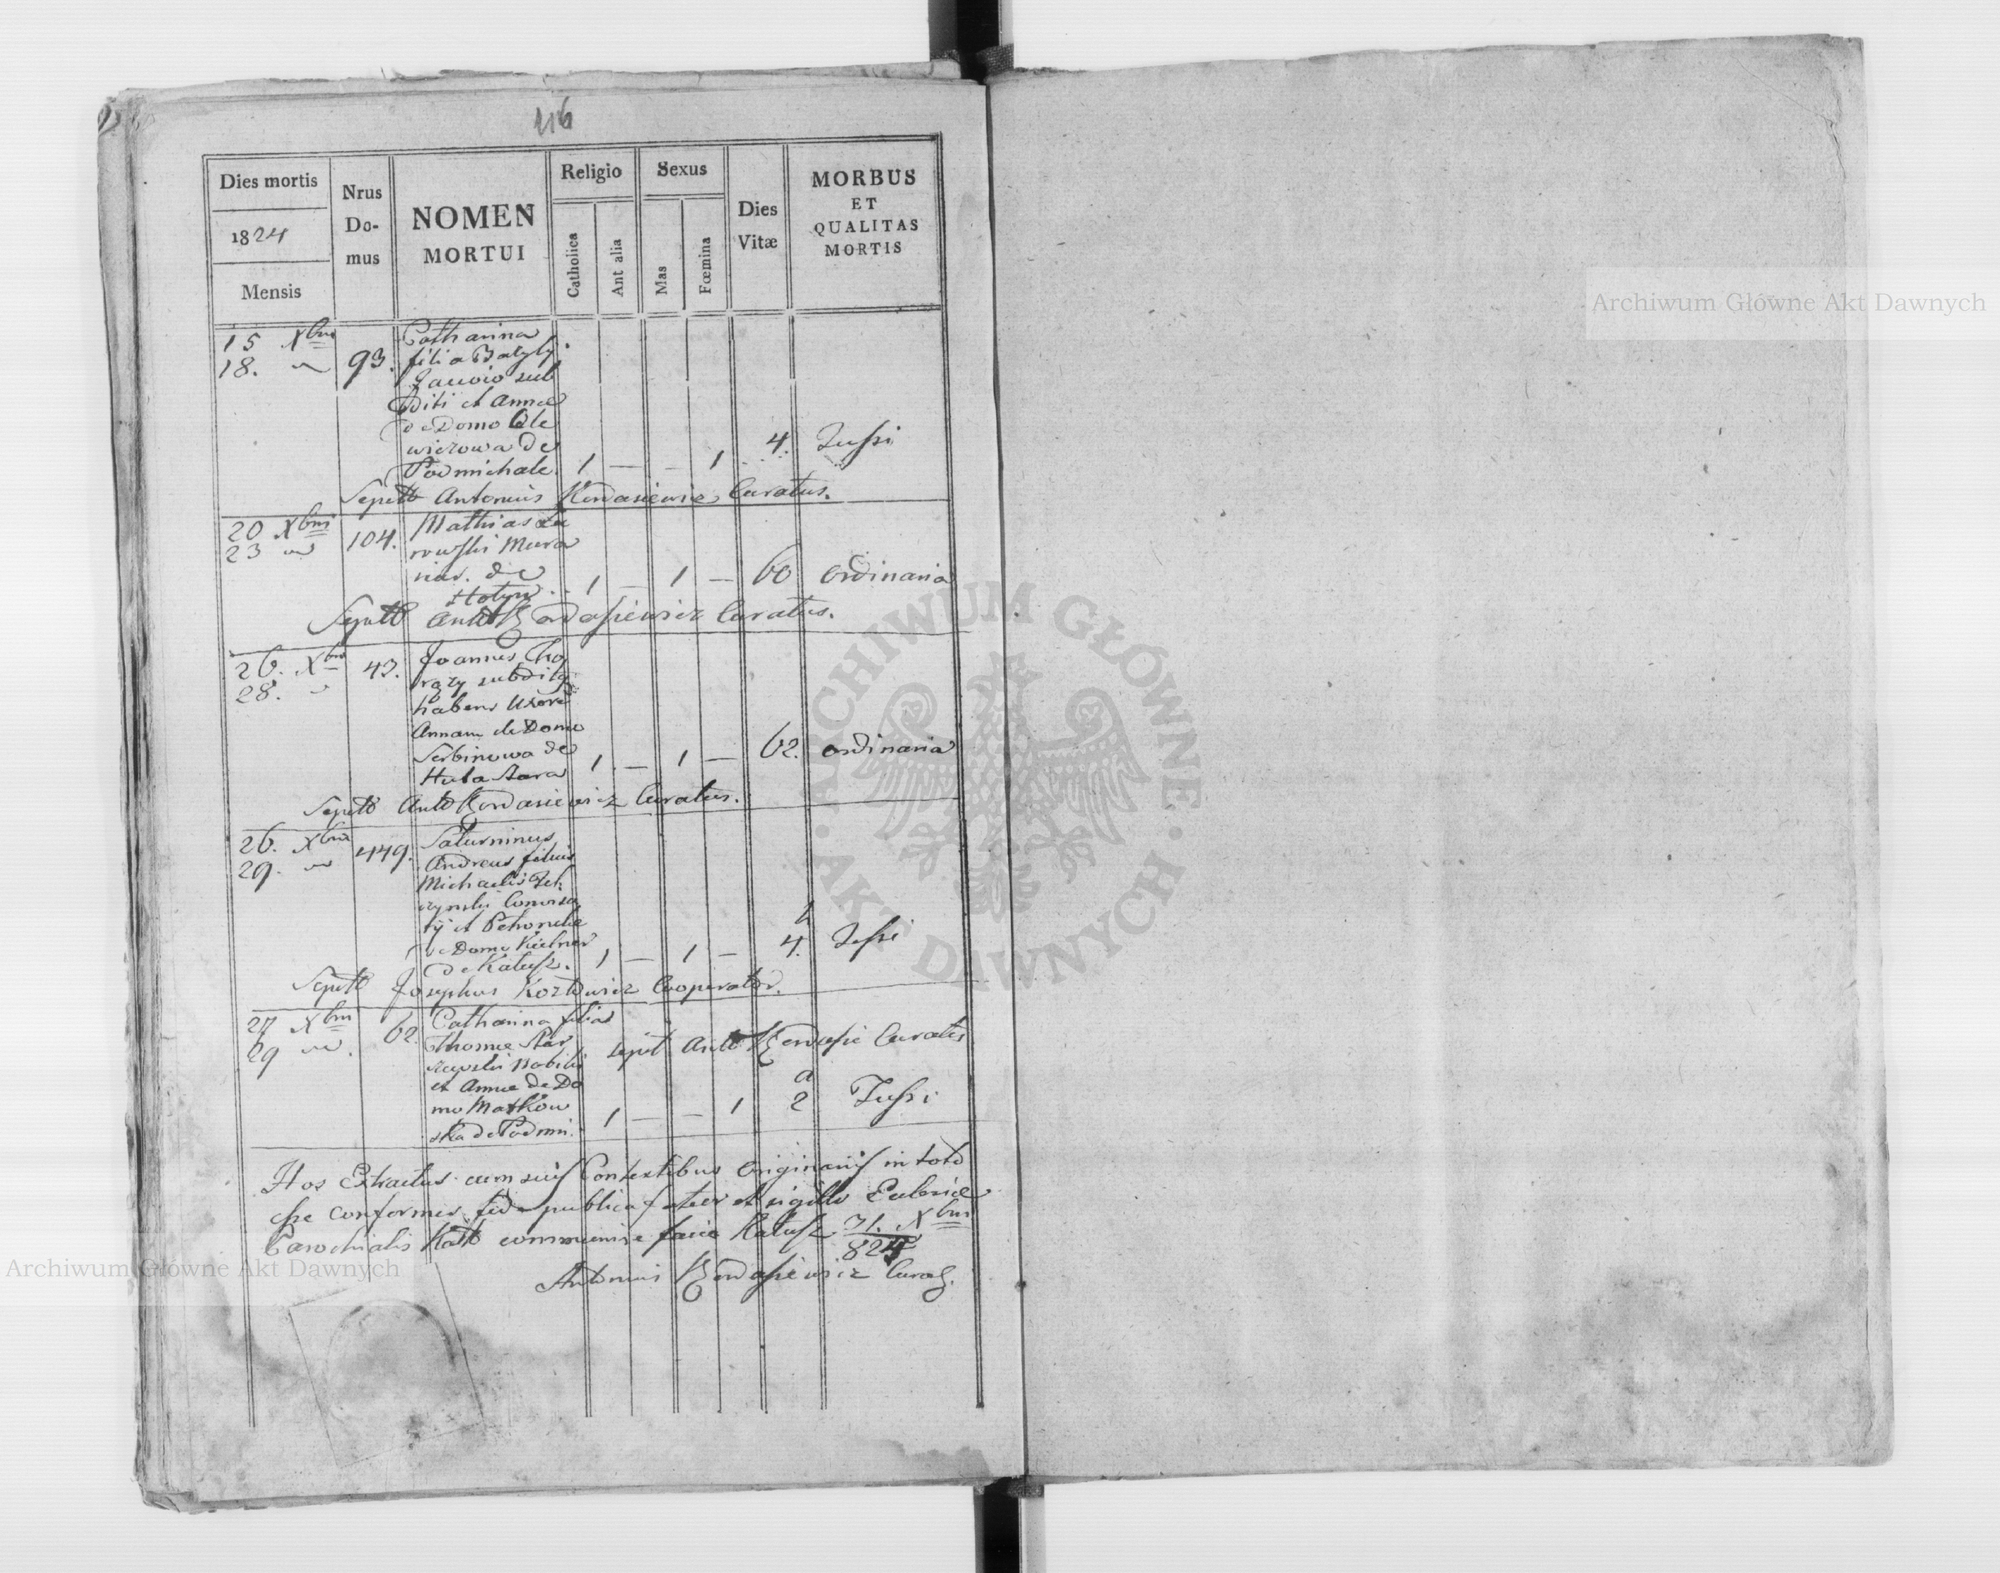 116
Dies mortis
1824
Mensis
Nrus
Do-
mus
NOMEN
MORTUI
Religio
Catholica
Aut alia
Sexus
Mas
Fœmina
Dies
Vitæ
MORBUS
ET
QUALITAS
MORTIS
15 Xbris
18. 93.
Catharina
filia
sub
diti et Annae
de Domo Ole
wiczowa de
Podmichale 1 — — 1 4. Tussi
Sepult Antonius Kordasiewicz Curatus.
20 Xbris
23 104.
Mathias
rowski Mura
de
Hotyn 1 — 1 — 60 ordinaria
Sepult Anto Kordasiewicz Curatus.
26. Xbris 43.
28.
Joannes Cho
rąży subditg
habens Uxore
Annam de Domo
Serbinowa de
Huta Stara 1 — 1 — 62. ordinaria
Sepult Anto Kordasiewicz Curatus.
26. Xbris 449.
29.
Saturninus
Andreas filius
Michaelis
et Petronelae
de Domo
de Kałusz. 1 — 1 — 4. Tussi
Sepult Josephus Kozłowicz Cooperator.
27 Xbris 62.
29
Catharina filia
Thomae
Nobilis
et Annae de Do
mo Matkow
ska de Podmi. 1 — — 1 2 Tussi
sepult Anto Kordasie Curatus
Hos Extractus cum suis Contextibus originariis in toto
esse conformes fide publica fateor et sigillo Ecclesiae
Parochialis communire facio Kałusz 31. Xbris
824
Antonius Kordasiewicz
Archiwum Główne Akt Dawnych
Archiwum Główne Akt Dawnych
ARCHIWUM GŁÓWNE · AKT DAWNYCH ·